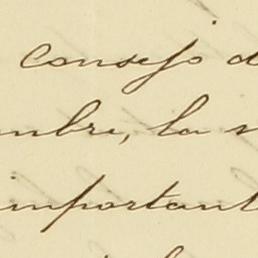 consejo d
mbre, la n
importante